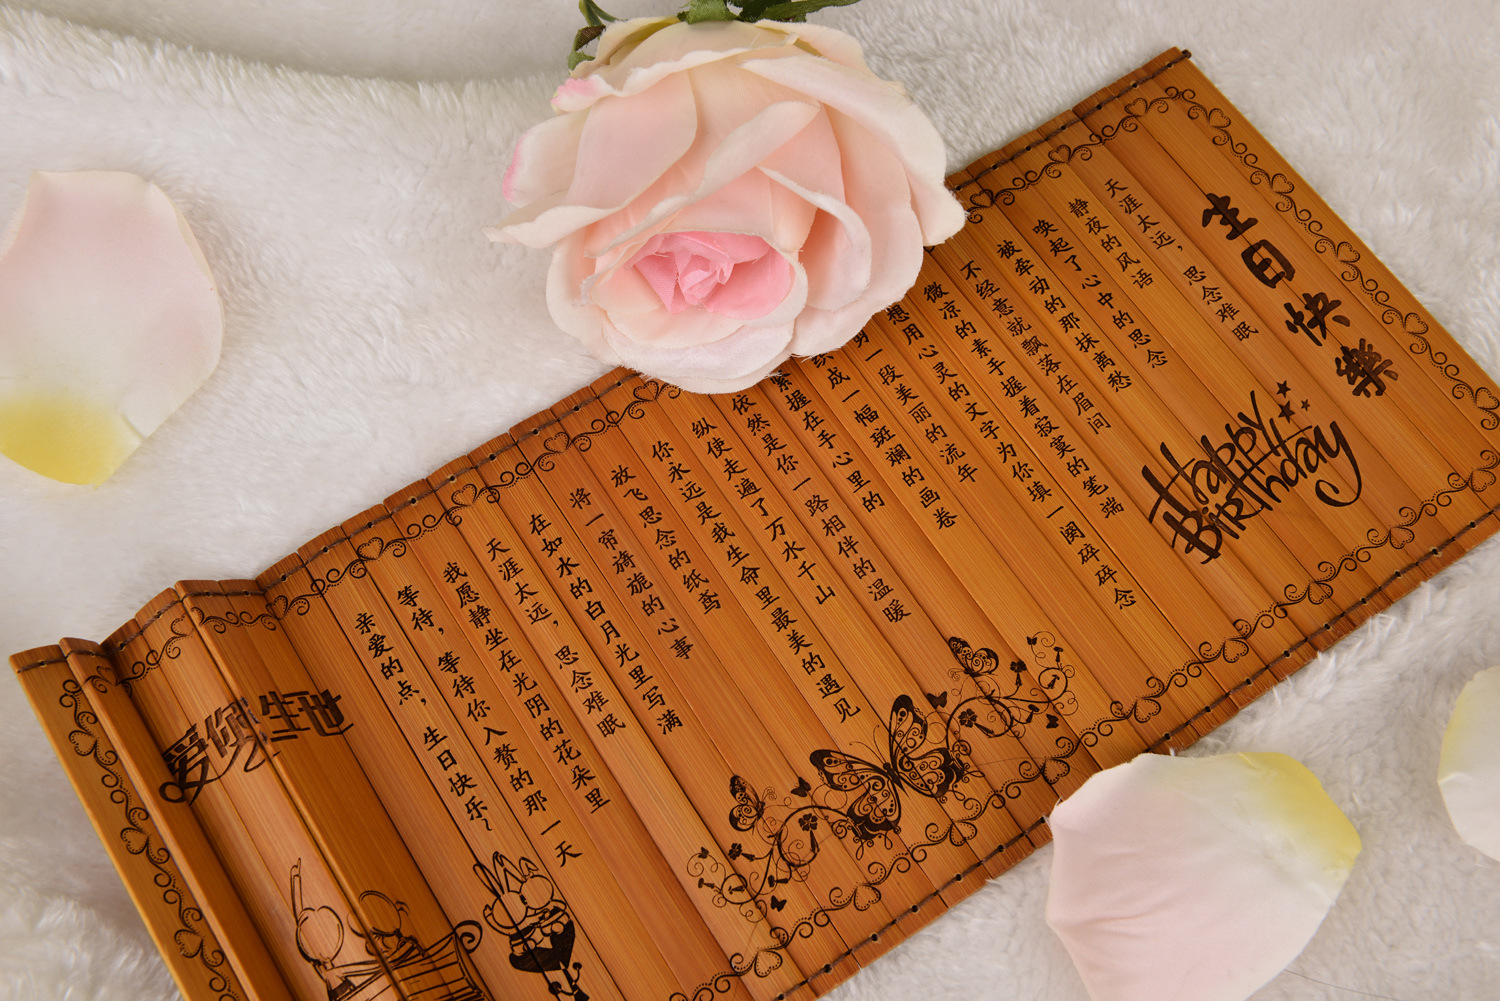 生日快樂
Happy
Birthday
天涯太远，思念难眠
静夜的风语
唤起了心中的思念
被牵动的那抹离愁
不经意就飘落在眉间
微凉的素手握着寂寞的笔端
想用心灵的文字为你填一阕碎碎念
一段美丽的流年
织成一幅斑斓的画卷
紧握在手心里的
依然是你一路相伴的温暖
纵使走遍了万水千山
你永远是我生命里最美的遇见
放飞思念的纸鸢
将一帘旖旎的心事
在如水的白月光里写满
天涯太远，思念难眠
我愿静坐在光阴的花朵里
等待，等待你入赘的那一天
亲爱的点，生日快乐~
爱你一生一世